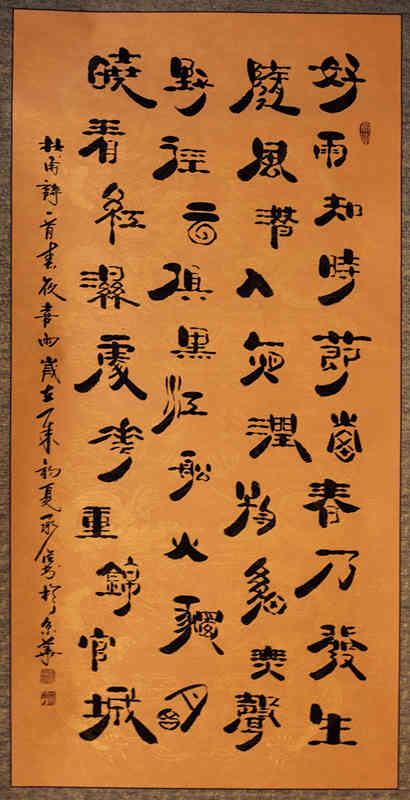 好雨知時節當春乃發生
隨風潛入夜潤物細無聲
野徑云俱黑江船火獨明
曉看紅濕處花重錦官城
杜甫詩一首春夜喜雨歲在丁未初夏於京華